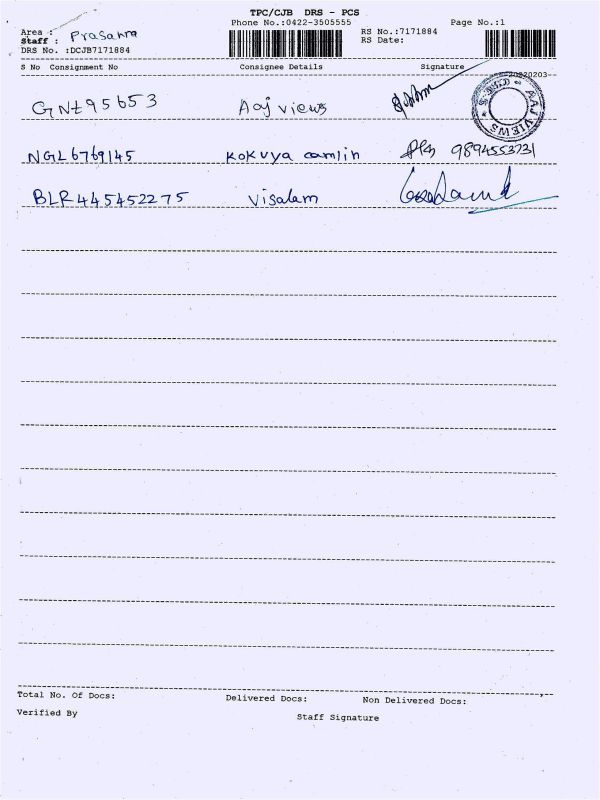 TPC/CJB DRS - PCS
Phone No.:0422-3505555 Page No.:1
Area : RS No.:7171884
Staff : Prasanna RS Date:
DRS No. :DCJB7171884
S No Consignment No Consignee Details Signature
20220203
GNt95653 Aaj views
AAJ VIEWS
NGL6769145 Kokuya camlin 9894553731
BLR445452275 Visalam
Total No. Of Docs: Delivered Docs: Non Delivered Docs:
Verified By Staff Signature